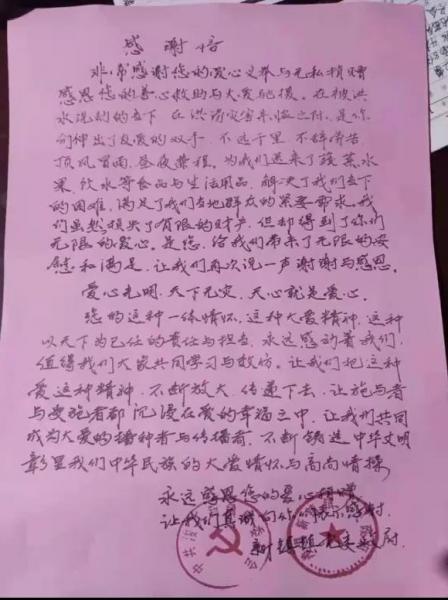 感谢信
非常感谢您的爱心义举与无私捐赠
感恩您的善心救助与大爱驰援。在被洪
水洗劫的当下 在洪涝灾害来临之付，是你
们伸出了友爱的双手，不远千里，不辞劳苦
顶风冒雨，昼夜兼程。为我们送来了蔬菜水
果，饮水等食品与生活用品，解决了我们当下
的困难，满足了我们当地群众的紧要需求。我
们虽然损失了有限的财产，但却得到了你们
无限的爱心，是您，给我们带来了无限的安
慰和满足，让我们再次说一声谢谢与感恩。
爱心光明，天下无灾，天心就是爱心。
您的这种一体情怀，这种大爱精神，这种
以天下为己任的责任与担当，永远感动着我们，
值得我们大家共同学习与效仿。让我们把这种
爱这种精神，不断放大，传递下去，让施与者
与受施者都沉浸在爱的幸福之中，让我们共同
成为大爱的播种者与传播者，不断推进中华文明
彰显我们中华民族的大爱情怀与高尚情操。
永远感恩您的爱心捐赠
让我们真诚向你们表示感谢
新镇镇党委政府